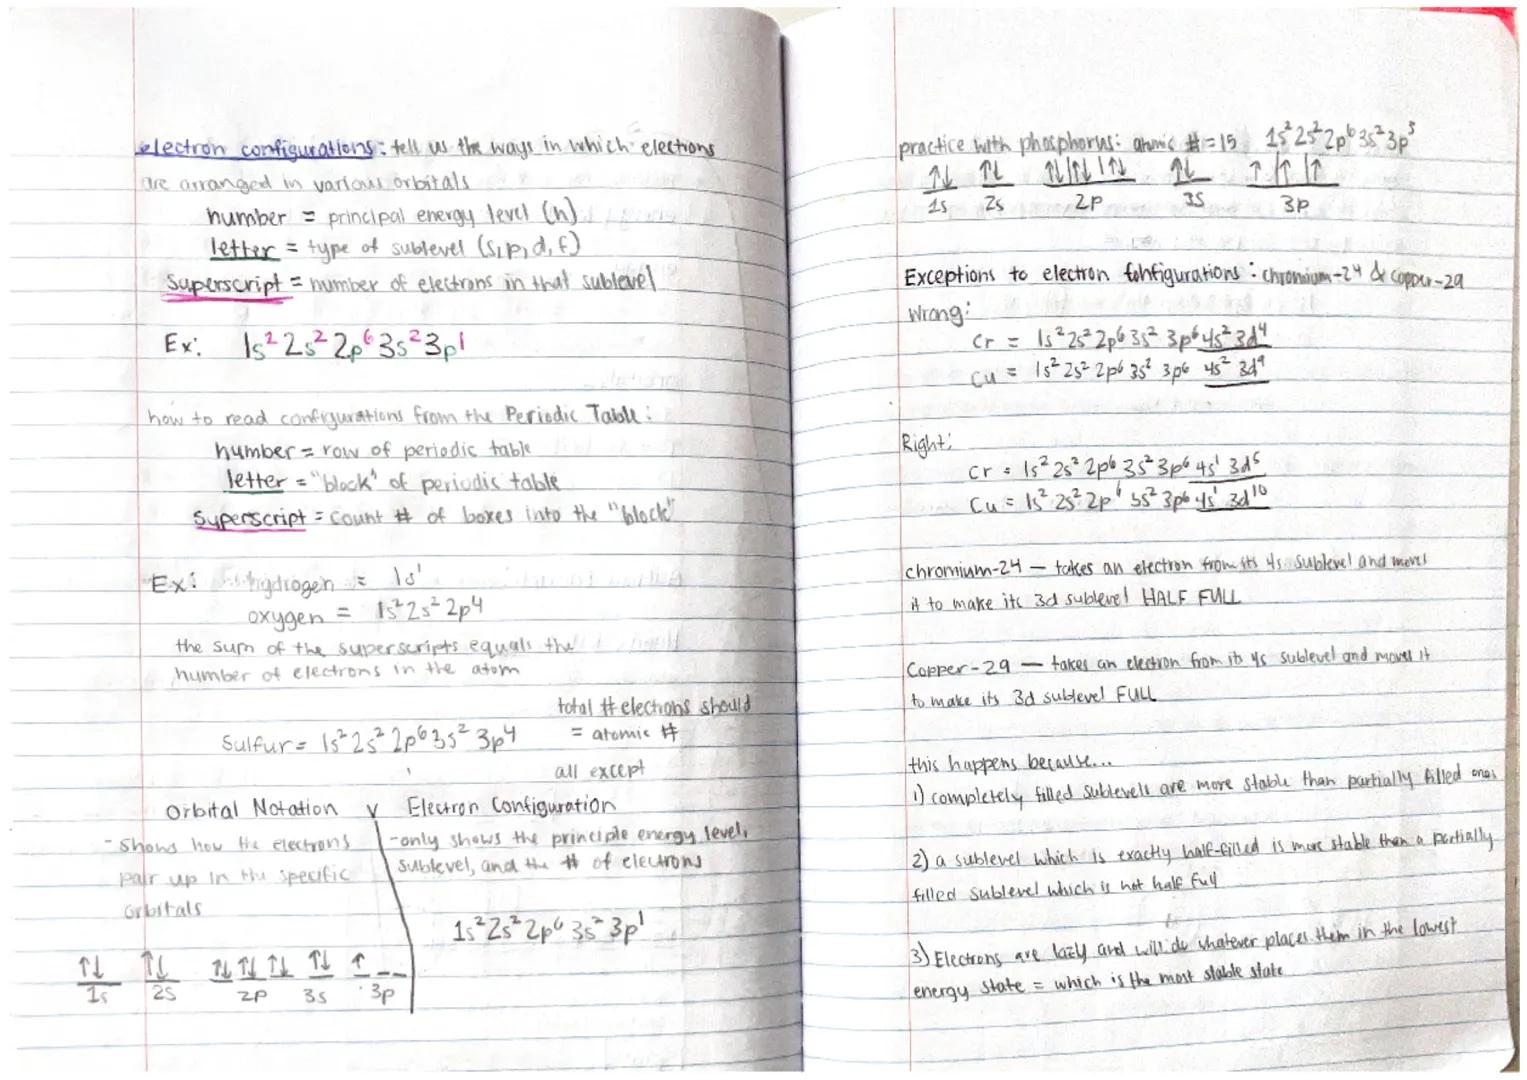 electron configurations: tell us the ways in which elections
are arranged in various orbitals
number = principal energy level (n)
letter = type of sublevel (s, p, d, f)
Superscript = number of electrons in that sublevel
Ex: 1s² 2s² 2p⁶ 3s² 3p¹
how to read configurations from the Periodic Table:
number = row of periodic table
letter = "block" of periodic table
Superscript = count # of boxes into the "block"
Ex: hydrogen = 1s¹
oxygen = 1s² 2s² 2p⁴
the sum of the superscripts equals the
number of electrons in the atom
total # electrons should
Sulfur = 1s² 2s² 2p⁶ 3s² 3p⁴ = atomic #
all except
Orbital Notation v Electron Configuration
- Shows how the electrons
pair up in the specific
orbitals
-only shows the principle energy level,
sublevel, and the # of electrons
1s² 2s² 2p⁶ 3s² 3p¹
↑↓ ↑↓ ↑↓ ↑↓ ↑↓ ↑↓ ↑ _ _
1s 2s 2p 3s 3p
practice with phosphorus: atomic # = 15 1s² 2s² 2p⁶ 3s² 3p³
↑↓ ↑↓ ↑↓|↑↓|↑↓ ↑↓ ↑|↑|↑
1s 2s 2p 3s 3p
Exceptions to electron configurations: chromium-24 & copper-29
Wrong:
Cr = 1s² 2s² 2p⁶ 3s² 3p⁶ 4s² 3d⁴
Cu = 1s² 2s² 2p⁶ 3s² 3p⁶ 4s² 3d⁹
Right:
Cr = 1s² 2s² 2p⁶ 3s² 3p⁶ 4s¹ 3d⁵
Cu = 1s² 2s² 2p⁶ 3s² 3p⁶ 4s¹ 3d¹⁰
chromium-24 — takes an electron from its 4s sublevel and moves
it to make its 3d sublevel HALF FULL
Copper-29 — takes an electron from its 4s sublevel and moves it
to make its 3d sublevel FULL
this happens because...
1) completely filled sublevels are more stable than partially filled ones
2) a sublevel which is exactly half-filled is more stable than a partially
filled sublevel which is not half full
3) Electrons are lazy and will do whatever places them in the lowest
energy state = which is the most stable state